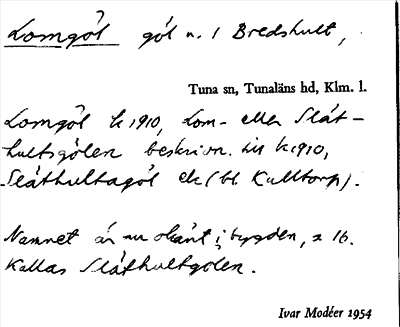 Lomgöl göl n. i Bredshult,
Tuna sn, Tunaläns hd, Klm. l.
Lomgöl k 1910, Lom- eller Slät-
hultsgölen beskrivn. till k 1910,
Släthultagöl ek (bl. Kulltorp).
Namnet är nu okänt i bygden, s 16.
Kallas Släthultgölen.
Ivar Modéer 1954